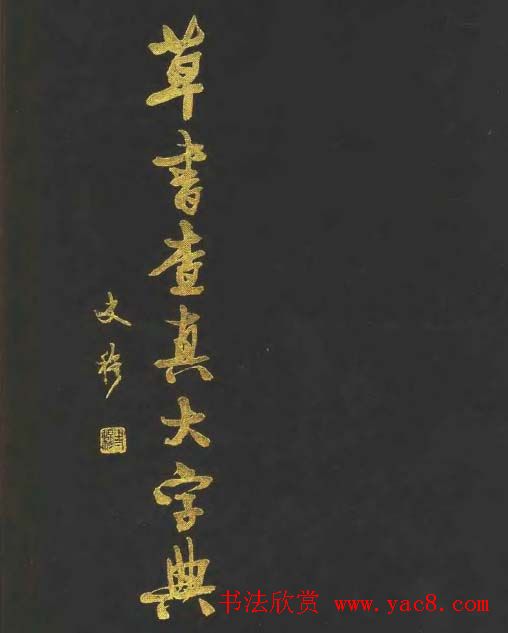 草書查真大字典
史穆
书法欣赏 www.yac8.com